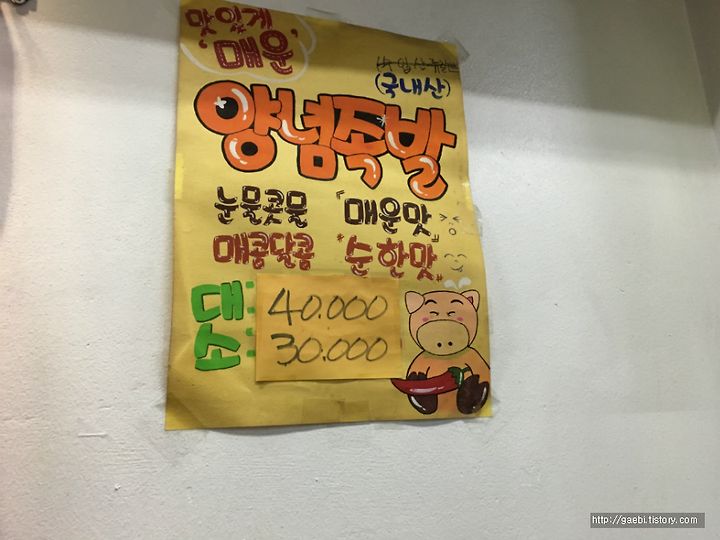 맛있게
매운
(국내산)
양념족발
눈물콧물 「매운맛」
매콤달콤 "순한맛"
대: 40.000
소: 30.000
http://gaebi.tistory.com